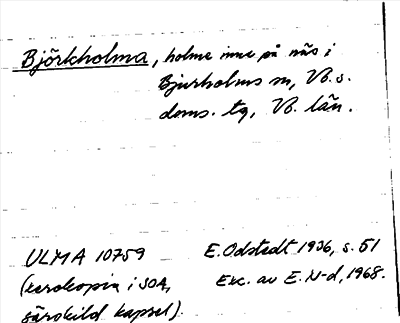 Björkholma, holme inne på näs i
Bjurholms sn, Vb. s.
doms. tg, Vb. län.
ULMA 10759 E. Odstedt 1936, s. 51
(xerokopia i SOA, Exc. av E. N-d, 1968.
särskild kapsel).